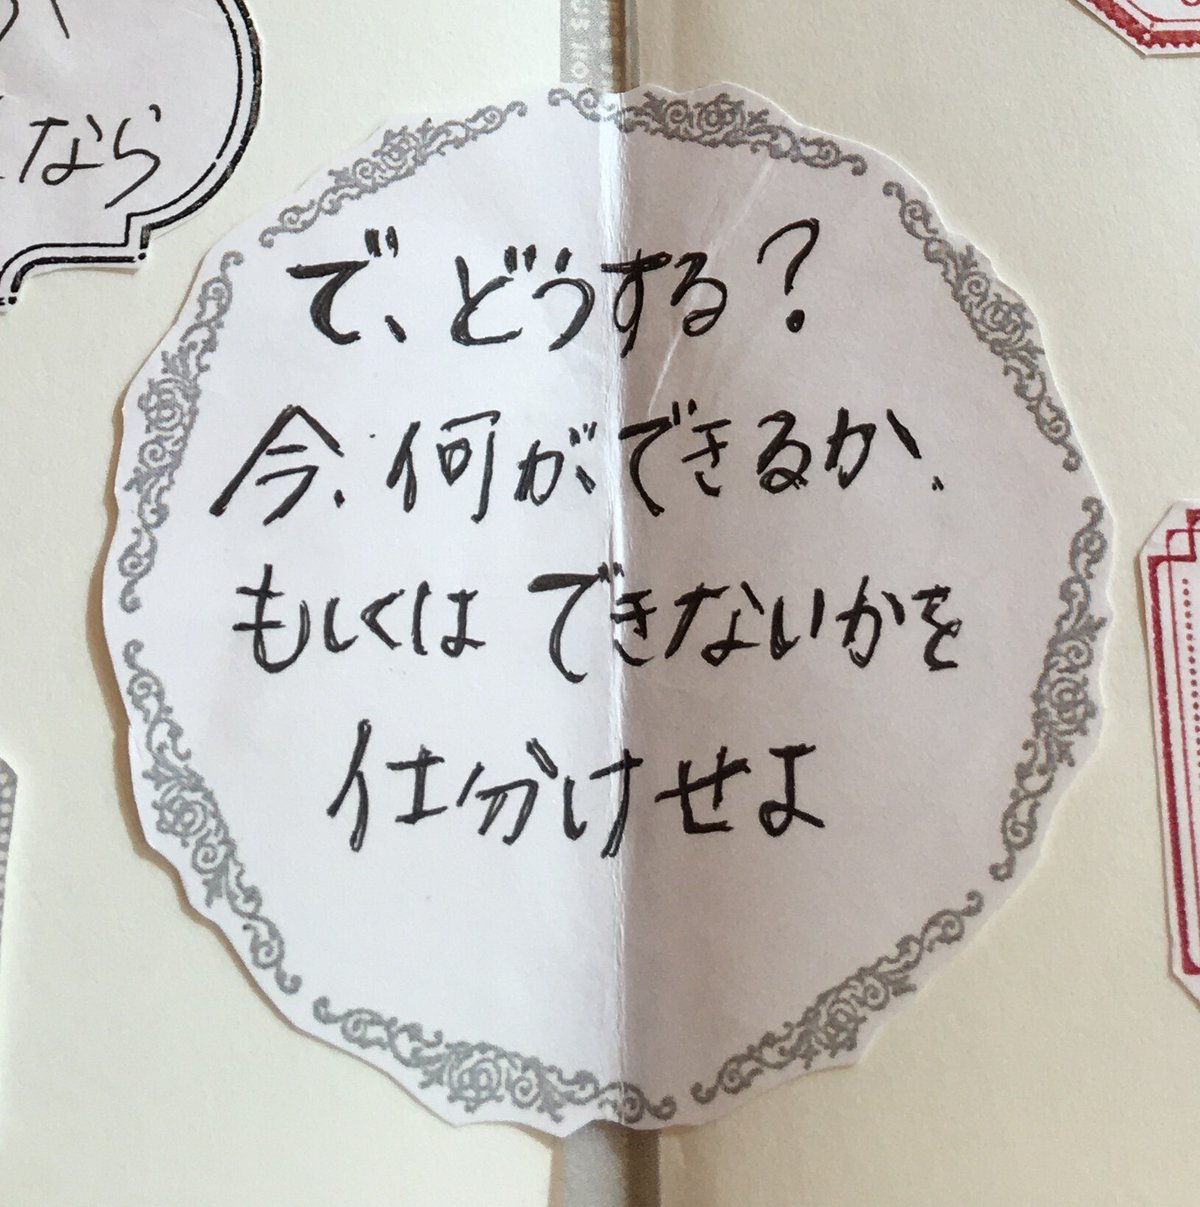 なら
で、どうする?
今、何ができるか、
もしくはできないかを
仕分けせよ